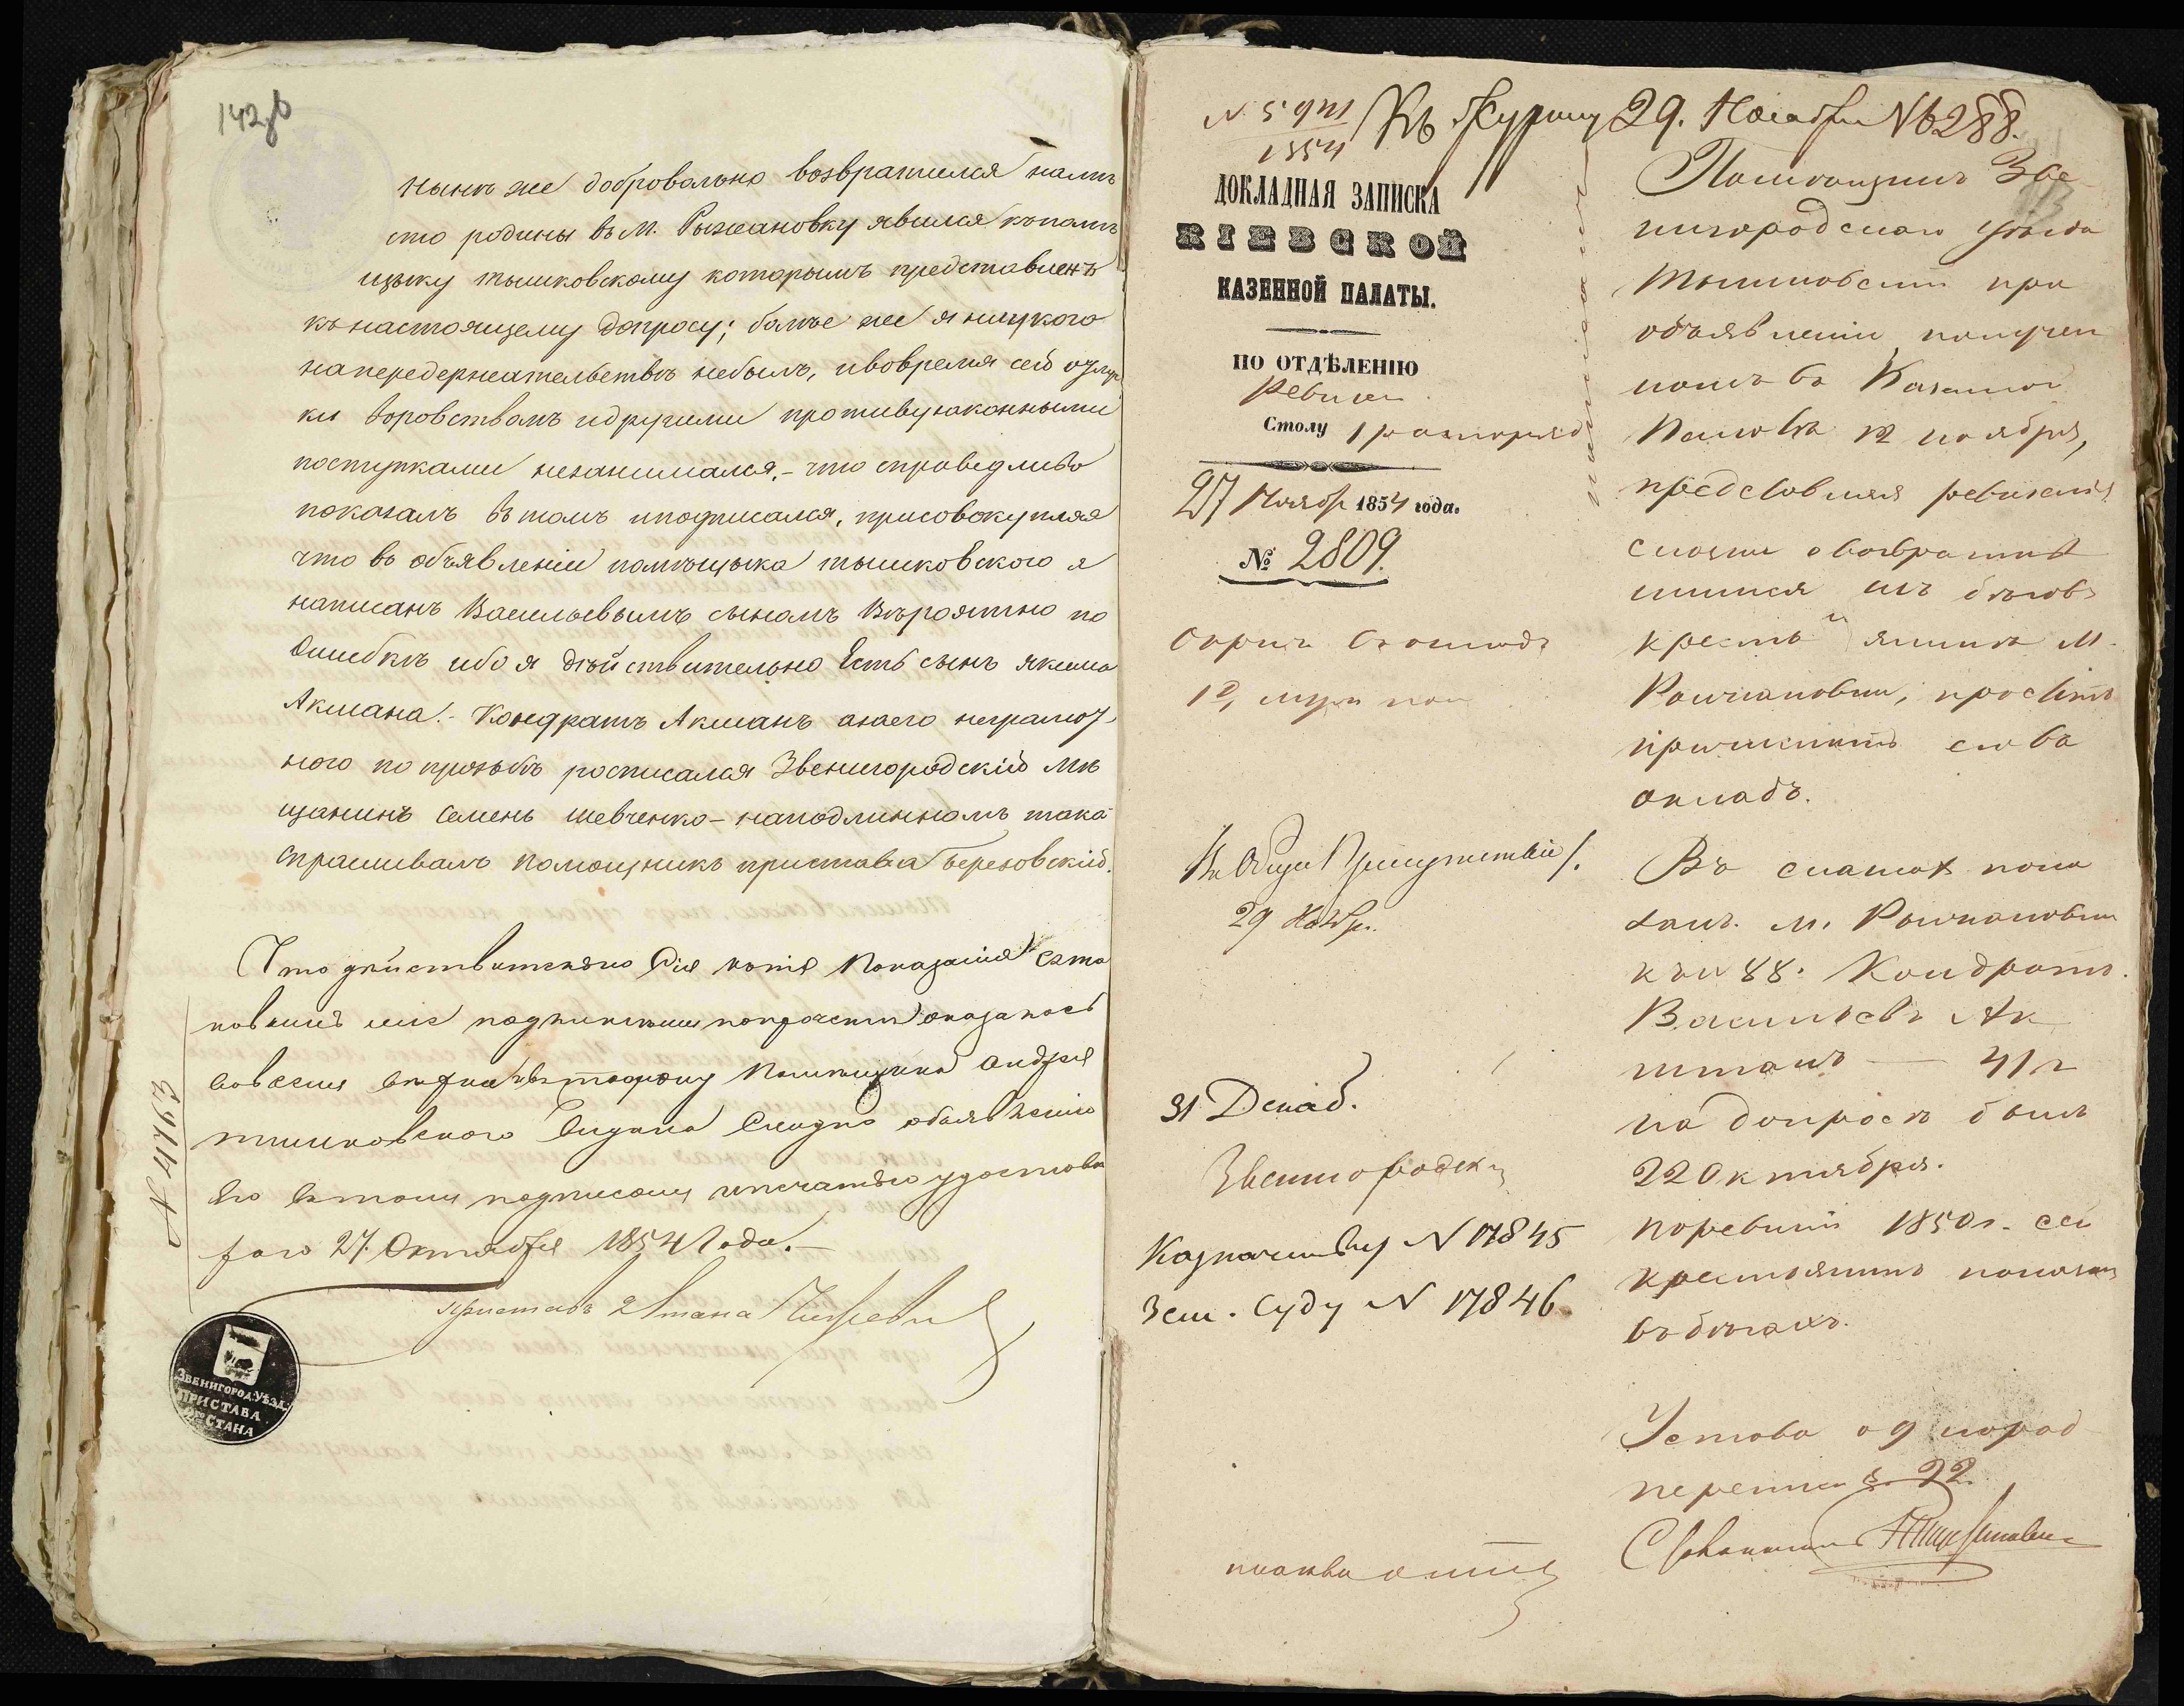 142об
ныне же добровольно возвратился на мѣ
сто родины въ М. Рыжановку явился къ помѣ
щыку Тышковскому которымъ представленъ
къ настоящему допросу; болѣе же я ни у кого
на передержательствѣ небылъ, и вовремя сей отлуч
ки воровствомъ и другими противузаконными
поступками незанимался. – что справедливо
показалъ въ томъ и подписался, присовокупляя
что въ объявленіи помѣщыка Тышковского я
написанъ Васильевымъ сыномъ Вѣроятно по
Ошибкѣ ибо я дѣйствительно Есть сынъ Якима
Акмана. – Кондратъ Акманъ а за его неграмот
ного по прозьбѣ росписался Звенигородскій Мѣ
щанинъ Семенъ Шевченко – на подлинномъ тако
Спрашивалъ Помощникъ пристава Березовскій.
Что дѣйствительно Сія копія Показанія
подлиннымъ оказалось
Помѣщика Андрея
Тышковского объявленію
Его въ томъ подписомъ и печатью удостовѣ
ряю 27. Октября 1854 Года. –
Приставъ 2 Стана
N 4763
ЗВЕНИГОРОД: УѢЗД:
ПРИСТАВА
2го СТАНА
N 5921
1854
Къ Журналу 29. Ноября № 288.
ДОКЛАДНАЯ ЗАПИСКА
КІЕВСКОЙ
КАЗЕННОЙ ПАЛАТЫ.
ПО ОТДѢЛЕНІЮ
Ревизск
Столу 1
27 Ноябр 1854 года.
№ 2809.
Въ Общее Присутствіе
29 Ноябр.
31 Декаб.
Звенигородск
Казначейству N 17845
Зем. Суду N 17846
Помѣщикъ Зве
нигородскаго уѣзда
Тышковскій при
объявленіи получен
номъ въ Казенной
Палатѣ 12 ноября,
представляя ревизскія
сказки о возвратив
шимся изъ бѣговъ
крестьянинѣ М.
Рыжановки, проситъ
причислить его въ
окладъ.
Въ сказкѣ пока
занъ. м. Рыжановки
къ N 88. Кондратъ
Васильевъ Ак
шманъ — 41 л
на допросѣ былъ
22 Октября.
По ревизіи 1850 г. сей
крестьянинъ показанъ
въ бѣгахъ.
Устава о 9 народ
переписи § 22